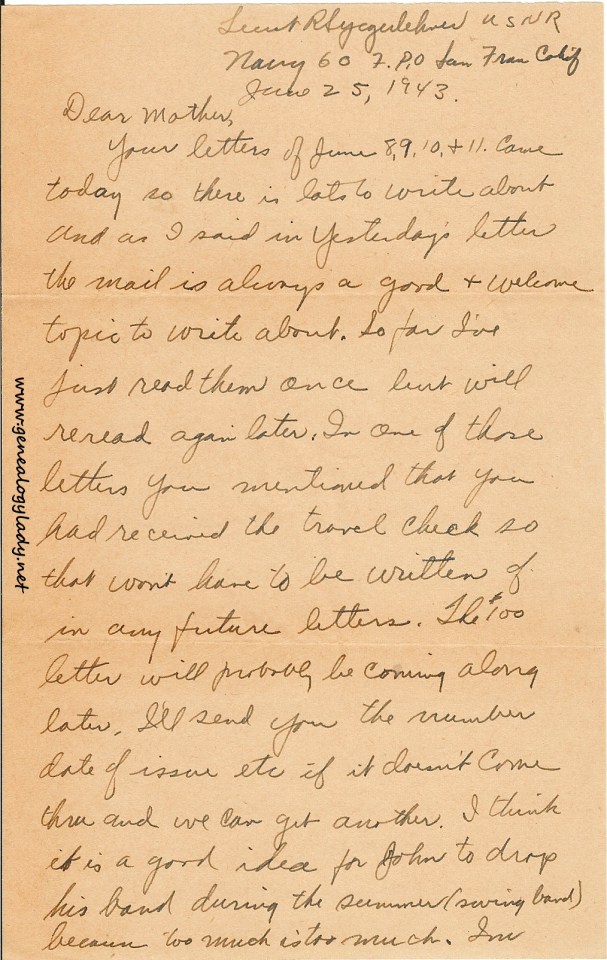 Lieut R Yegerlehner USNR
Navy 60 F.P.O San Fran Calif
June 25, 1943.
Dear Mother,
Your letters of June 8,9,10,+11. came
today so there is lots to write about
and as I said in yesterday's letter
the mail is always a good + welcome
topic to write about. So far I've
just read them once but will
reread again later. In one of those
letters you mentioned that you
had received the travel check so
that won't have to be written of
in any future letters. The $100
letter will probably be coming along
later. I'll send you the number
date of issue etc if it doesn't come
thru and we can get another. I think
it is a good idea for John to drop
his band during the summer (swing band)
because too much is too much. I'm
www.genealogylady.net